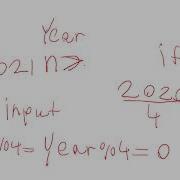 Year
021 n→ if
input 2020
4
%4= Year%4=0